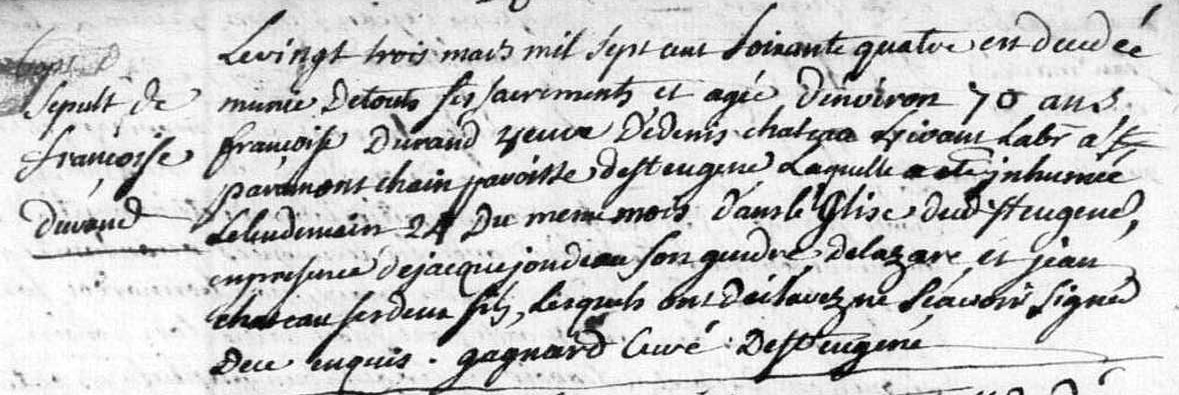 Sépult. de
françoise
Durand
Le vingt trois mars mil sept cent soixante quatre est decedée
munie de touts ses sacrements et agée d'environ 70 ans
françoise Durand veuve de denis chateau vivant Labr à
parômont chain paroisse de st eugene Laquelle a eté inhumée
Le lendemain 24 du meme mois dans l'eglise dud. st eugene,
en presence de jacque jondeau son gendre de lazare et jean
chateau ses deux fils, lesquels ont déclarez ne scavoir signer
de ce enquis. gagnard Curé de st eugene